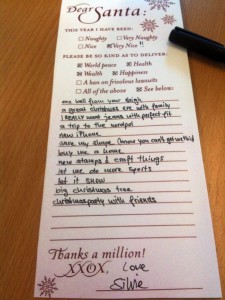 Dear
Santa:
THIS YEAR I HAVE BEEN:
☐ Naughty ☐ Very Naughty
☐ Nice ☒ Very Nice !!
PLEASE BE SO KIND AS TO DELIVER:
☒ World peace ☒ Health
☒ Wealth ☒ Happiness
☐ A ban on frivolous lawsuits
☐ All of the above ☒ See below:
one bell from your sleigh
a great christmas eve with family
I REALLY want jeans with perfect fit
a trip to the nordpol
new iPhone
save my shape (know you can't get me thin)
buy me a home
new stamps & craft things
let me do more sports
let it SNOW
big christmas tree
christmasparty with friends
Thanks a million!
XXOX, Love
Silvie